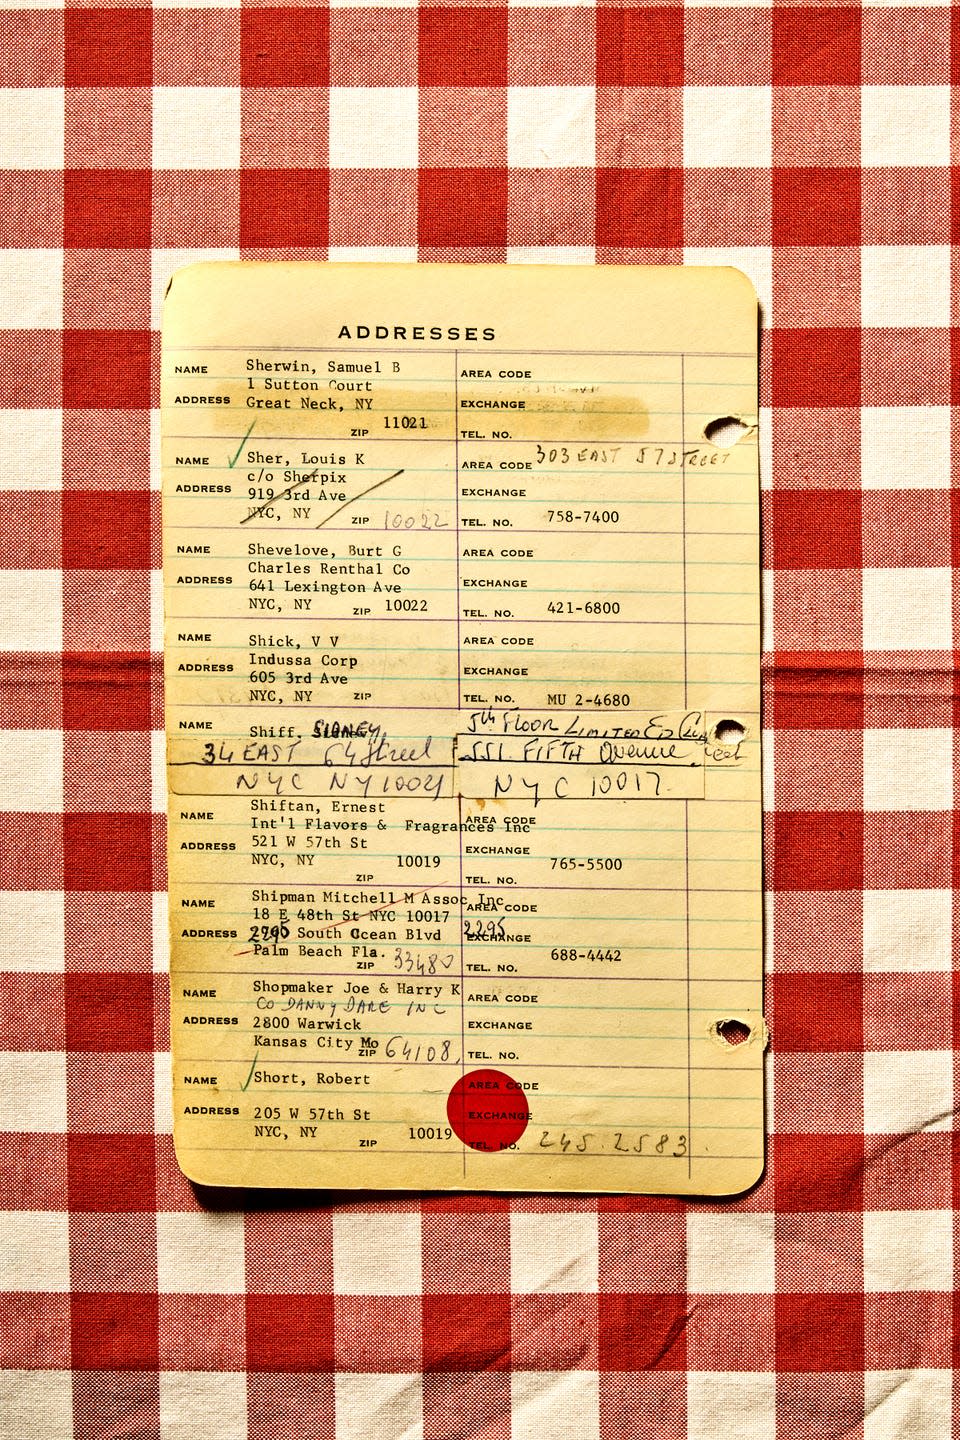 ADDRESSES
NAME Sherwin, Samuel B AREA CODE
1 Sutton Court
ADDRESS Great Neck, NY EXCHANGE
ZIP 11021 TEL. NO.
NAME Sher, Louis K AREA CODE 303 EAST 57 STREET
c/o Sherpix
ADDRESS 919 3rd Ave EXCHANGE
NYC, NY ZIP 10022 TEL. NO. 758-7400
NAME Shevelove, Burt G AREA CODE
Charles Renthal Co
ADDRESS 641 Lexington Ave EXCHANGE
NYC, NY ZIP 10022 TEL. NO. 421-6800
NAME Shick, V V AREA CODE
Indussa Corp
ADDRESS 605 3rd Ave EXCHANGE
NYC, NY ZIP TEL. NO. MU 2-4680
NAME Shiff, SIDNEY, 5th FLOOR LIMITED ED Club
34 EAST 64 Street 551. FIFTH Avenue
NYC NY 10021 NYC 10017.
Shiftan, Ernest
NAME Int'l Flavors & Fragrances Inc AREA CODE
ADDRESS 521 W 57th St EXCHANGE
NYC, NY 10019 765-5500
ZIP TEL. NO.
Shipman Mitchell M Assoc Inc
NAME 18 E 48th St NYC 10017 AREA CODE
ADDRESS 2295 South Ocean Blvd 2295 EXCHANGE
Palm Beach Fla. 33480 688-4442
ZIP TEL. NO.
NAME Shopmaker Joe & Harry K AREA CODE
CO DANNY DARE INC
ADDRESS 2800 Warwick EXCHANGE
Kansas City Mo ZIP 64108, TEL. NO.
NAME Short, Robert AREA CODE
ADDRESS 205 W 57th St EXCHANGE
NYC, NY ZIP 10019 TEL. NO. 245.2583